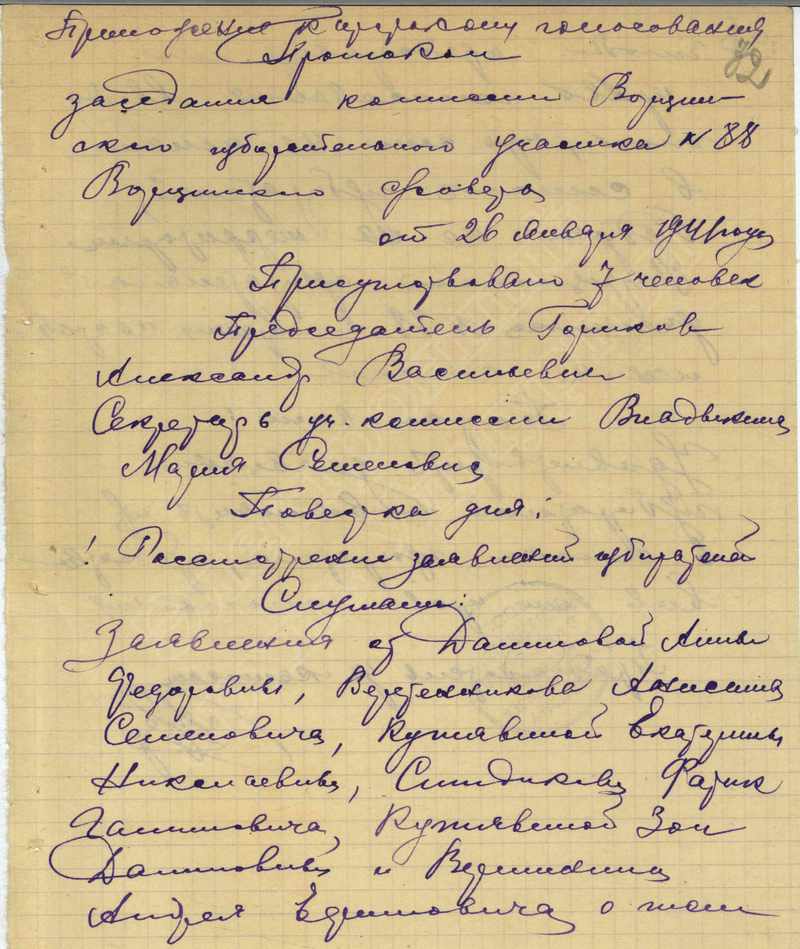 Приложение к протоколу голосования
82
Протокол
заседания комиссии Ворцин-
ского избирательного участка № 88
Ворцинского с/совета
от 26 января 1941 года
Присутствовало 7 человек
Председатель Горшков
Александр Васильевич
Секретарь уч. комиссии Владыкина
Мария Семеновна
Повестка дня:
! Рассмотрение заявлений избирателей
Слушали:
Заявления от Даниловой Анны
Федоровны, Веретенникова Анисима
Семеновича, Кутявиной Екатерины
Николаевны, Фатик
Кутявиной Зои
Даниловны и
Андрея Ефимовича о том